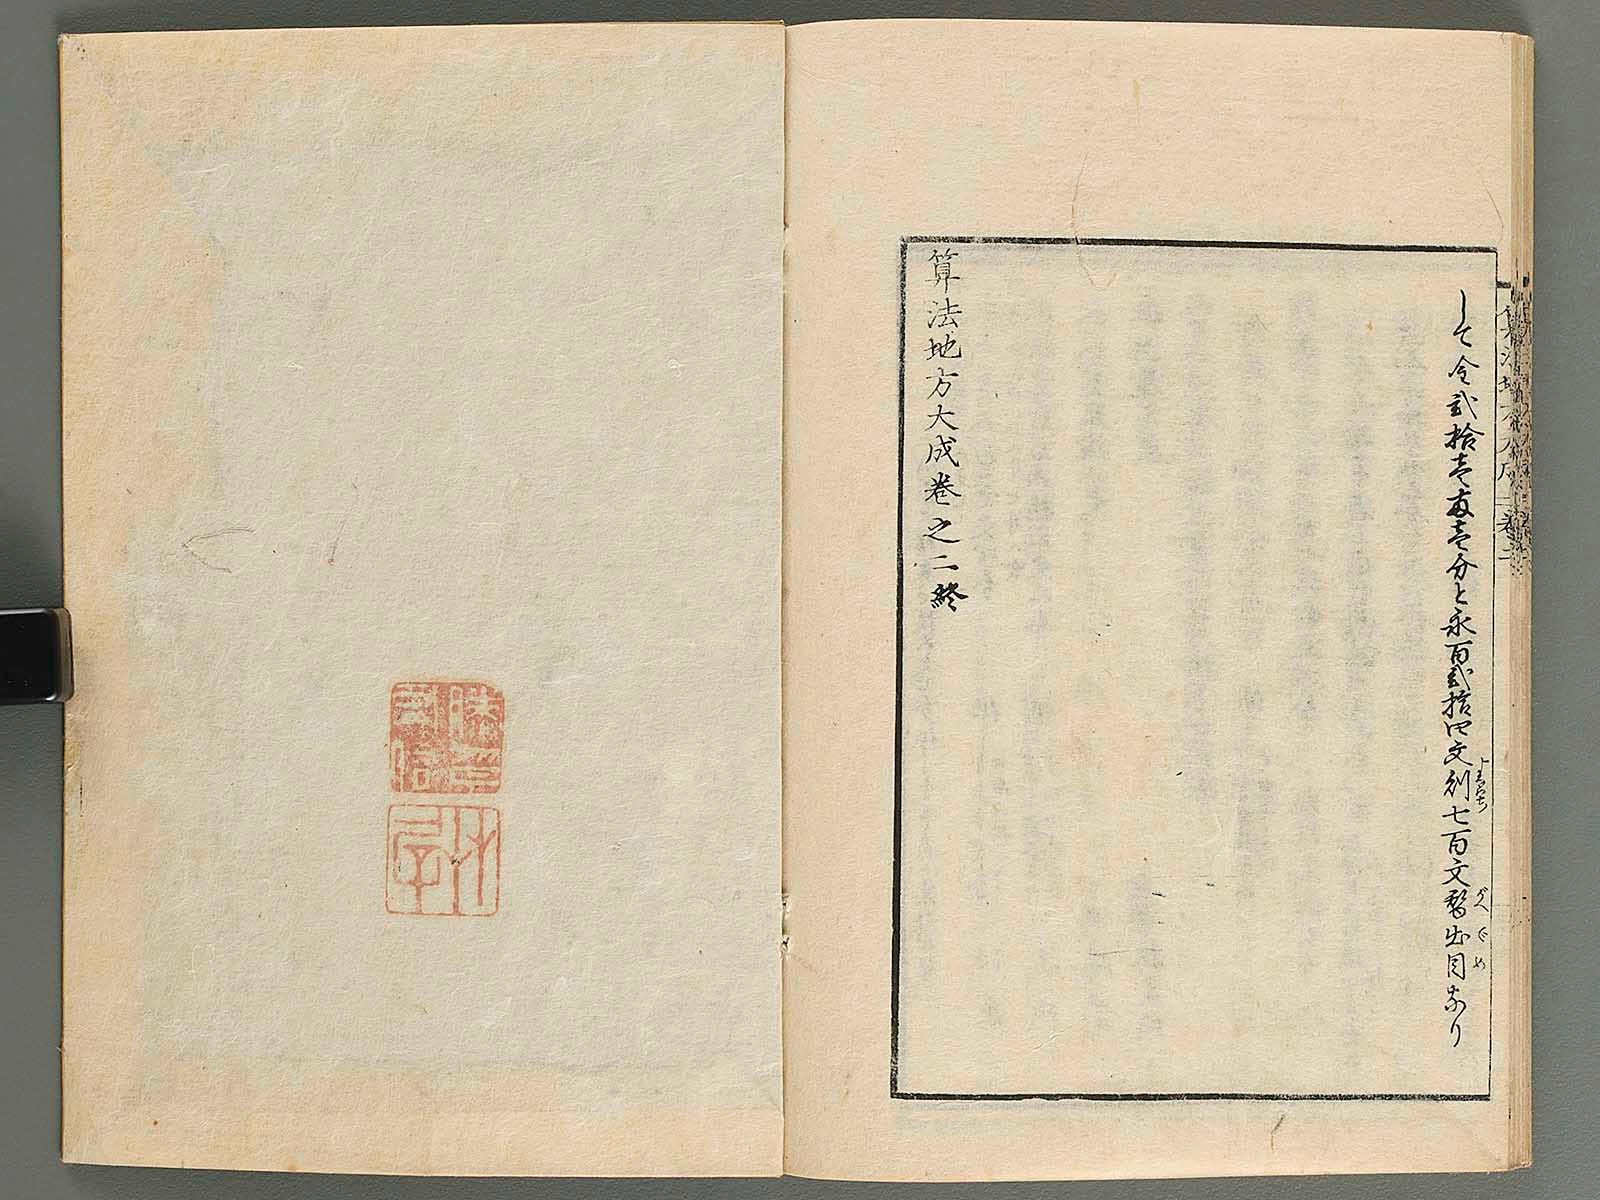 して金弐拾壱両壱分と永百弐拾四文割七百文替出目なり
算法地方大成巻之二終